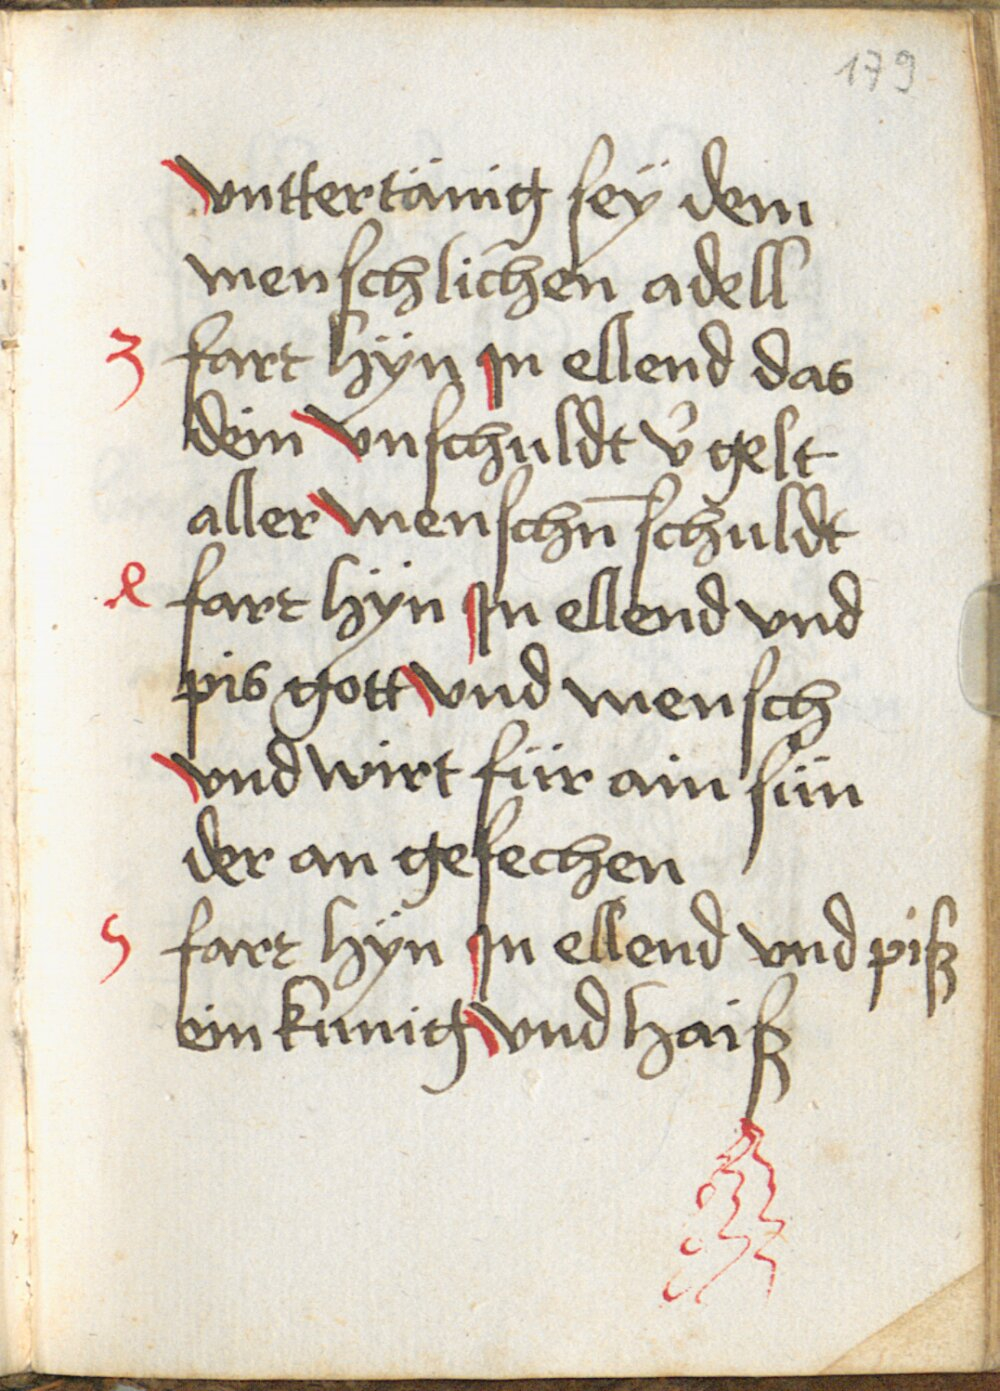 179
vnttertänig seÿ dem
menschlichen adell
3 fart hÿn Jn ellend das
dein vnschuldt v̉gelt
aller menschn̄ schuldt
4 fart hÿn Jn ellend vnd
pis gott vnd mensch
vnd wirt für ain sün
der an gesechen
5 fart hÿn Jn ellend vnd piß
ein kunig vnd haiß